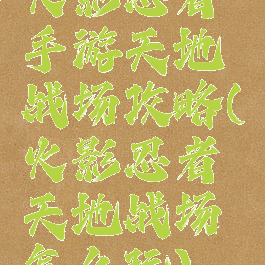 火影忍者
手游天地
战场攻略(
火影忍者
天地战场
怎么玩)